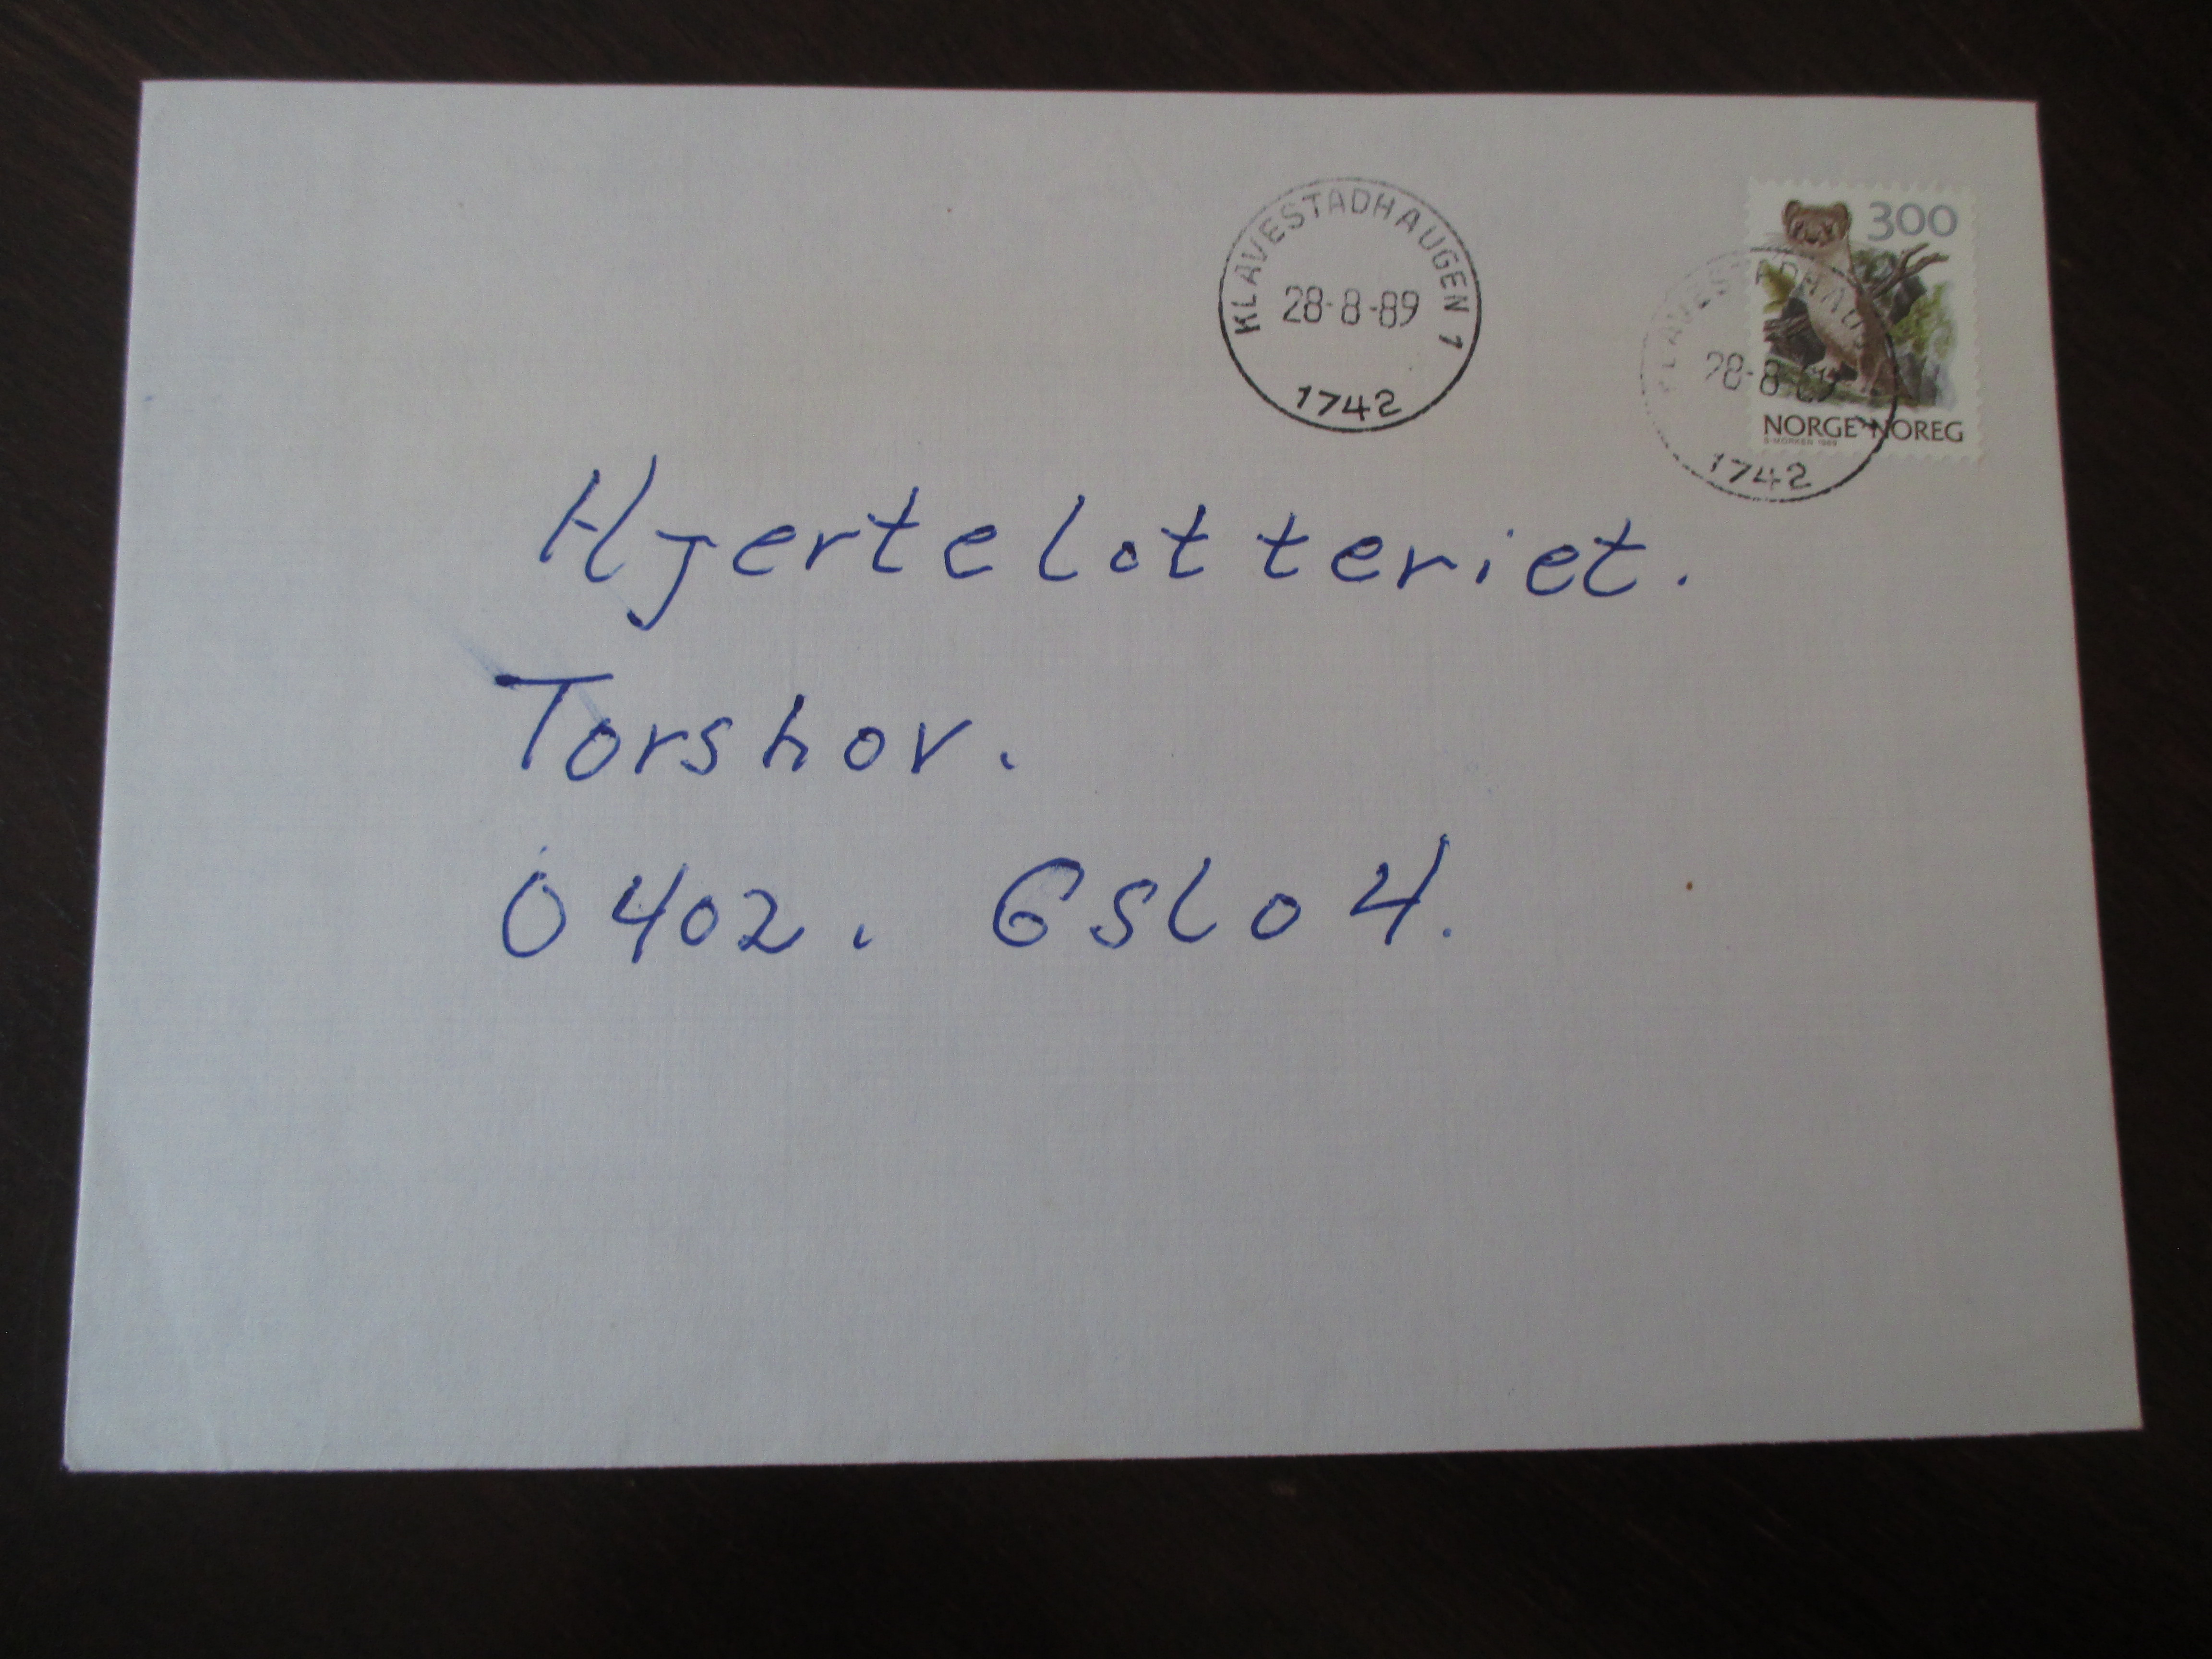 KLAVESTADHAUGEN 1
28-8-89
1742
300
NORGE NOREG
S·MORKEN 1989
28-8-89
1742
Hjertelotteriet.
Torshov.
0402. Oslo 4.